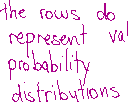 the rows do
represent val
probability
distributions